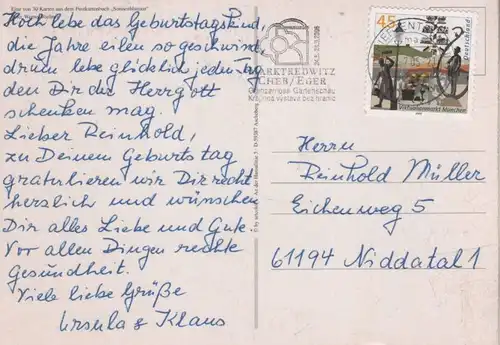 Eine von 30 Karten aus dem Postkartenbuch „Sonnenblumen“
Hoch lebe das Geburtstagskind,
die Jahre eilen so geschwind
drum lebe glücklich jeden Tag
den Dir der Herrgott
schenken mag.
Lieber Reinhold,
zu Deinem Geburtstag
gratulieren wir Dir recht
herzlich und wünschen
Dir alles Liebe und Gute.
Vor allen Dingen rechte
Gesundheit.
Viele liebe Grüße
Ursula & Klaus
MARKTREDWITZ
CHEB/EGER
Grenzenlose Gartenschau
Krajinná výstava bez hranic
45
Deutschland
Viktualienmarkt München
Herrn
Reinhold Müller
Eichenweg 5
61194 Niddatal 1